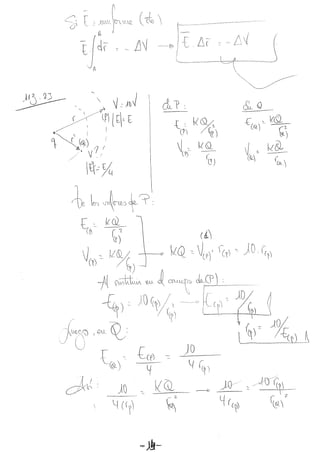 Si Ē: uniforme (cte)
Ē ∫ dr̄ = - ΔV → Ē · Δr̄ = - ΔV
113.23
V = 10V
(P) |E| = E
r
q
r' (Q)
V?
|E| = E/4
En P:
E(P) = KQ/r(P)²
V(P) = KQ/r(P)
En Q
E(Q) = KQ/r(Q)²
V(Q) = KQ/r(Q)
De los valores de P:
E(P) = KQ/r(P)²
V(P) = KQ/r(P) → KQ = V(P) · r(P) = 10 · r(P)
Al sustituir en el campo de (P):
E(P) = 10 r(P)/r(P)² → E(P) = 10/r(P)
r(P) = 10/E(P)
Luego, en Q:
E(Q) = E(P)/4 = 10/4 r(P)
Así: 10/4 (r(P)) = KQ/r(Q)² → 10/4 r(P) = 10 r(P)/r(Q)²